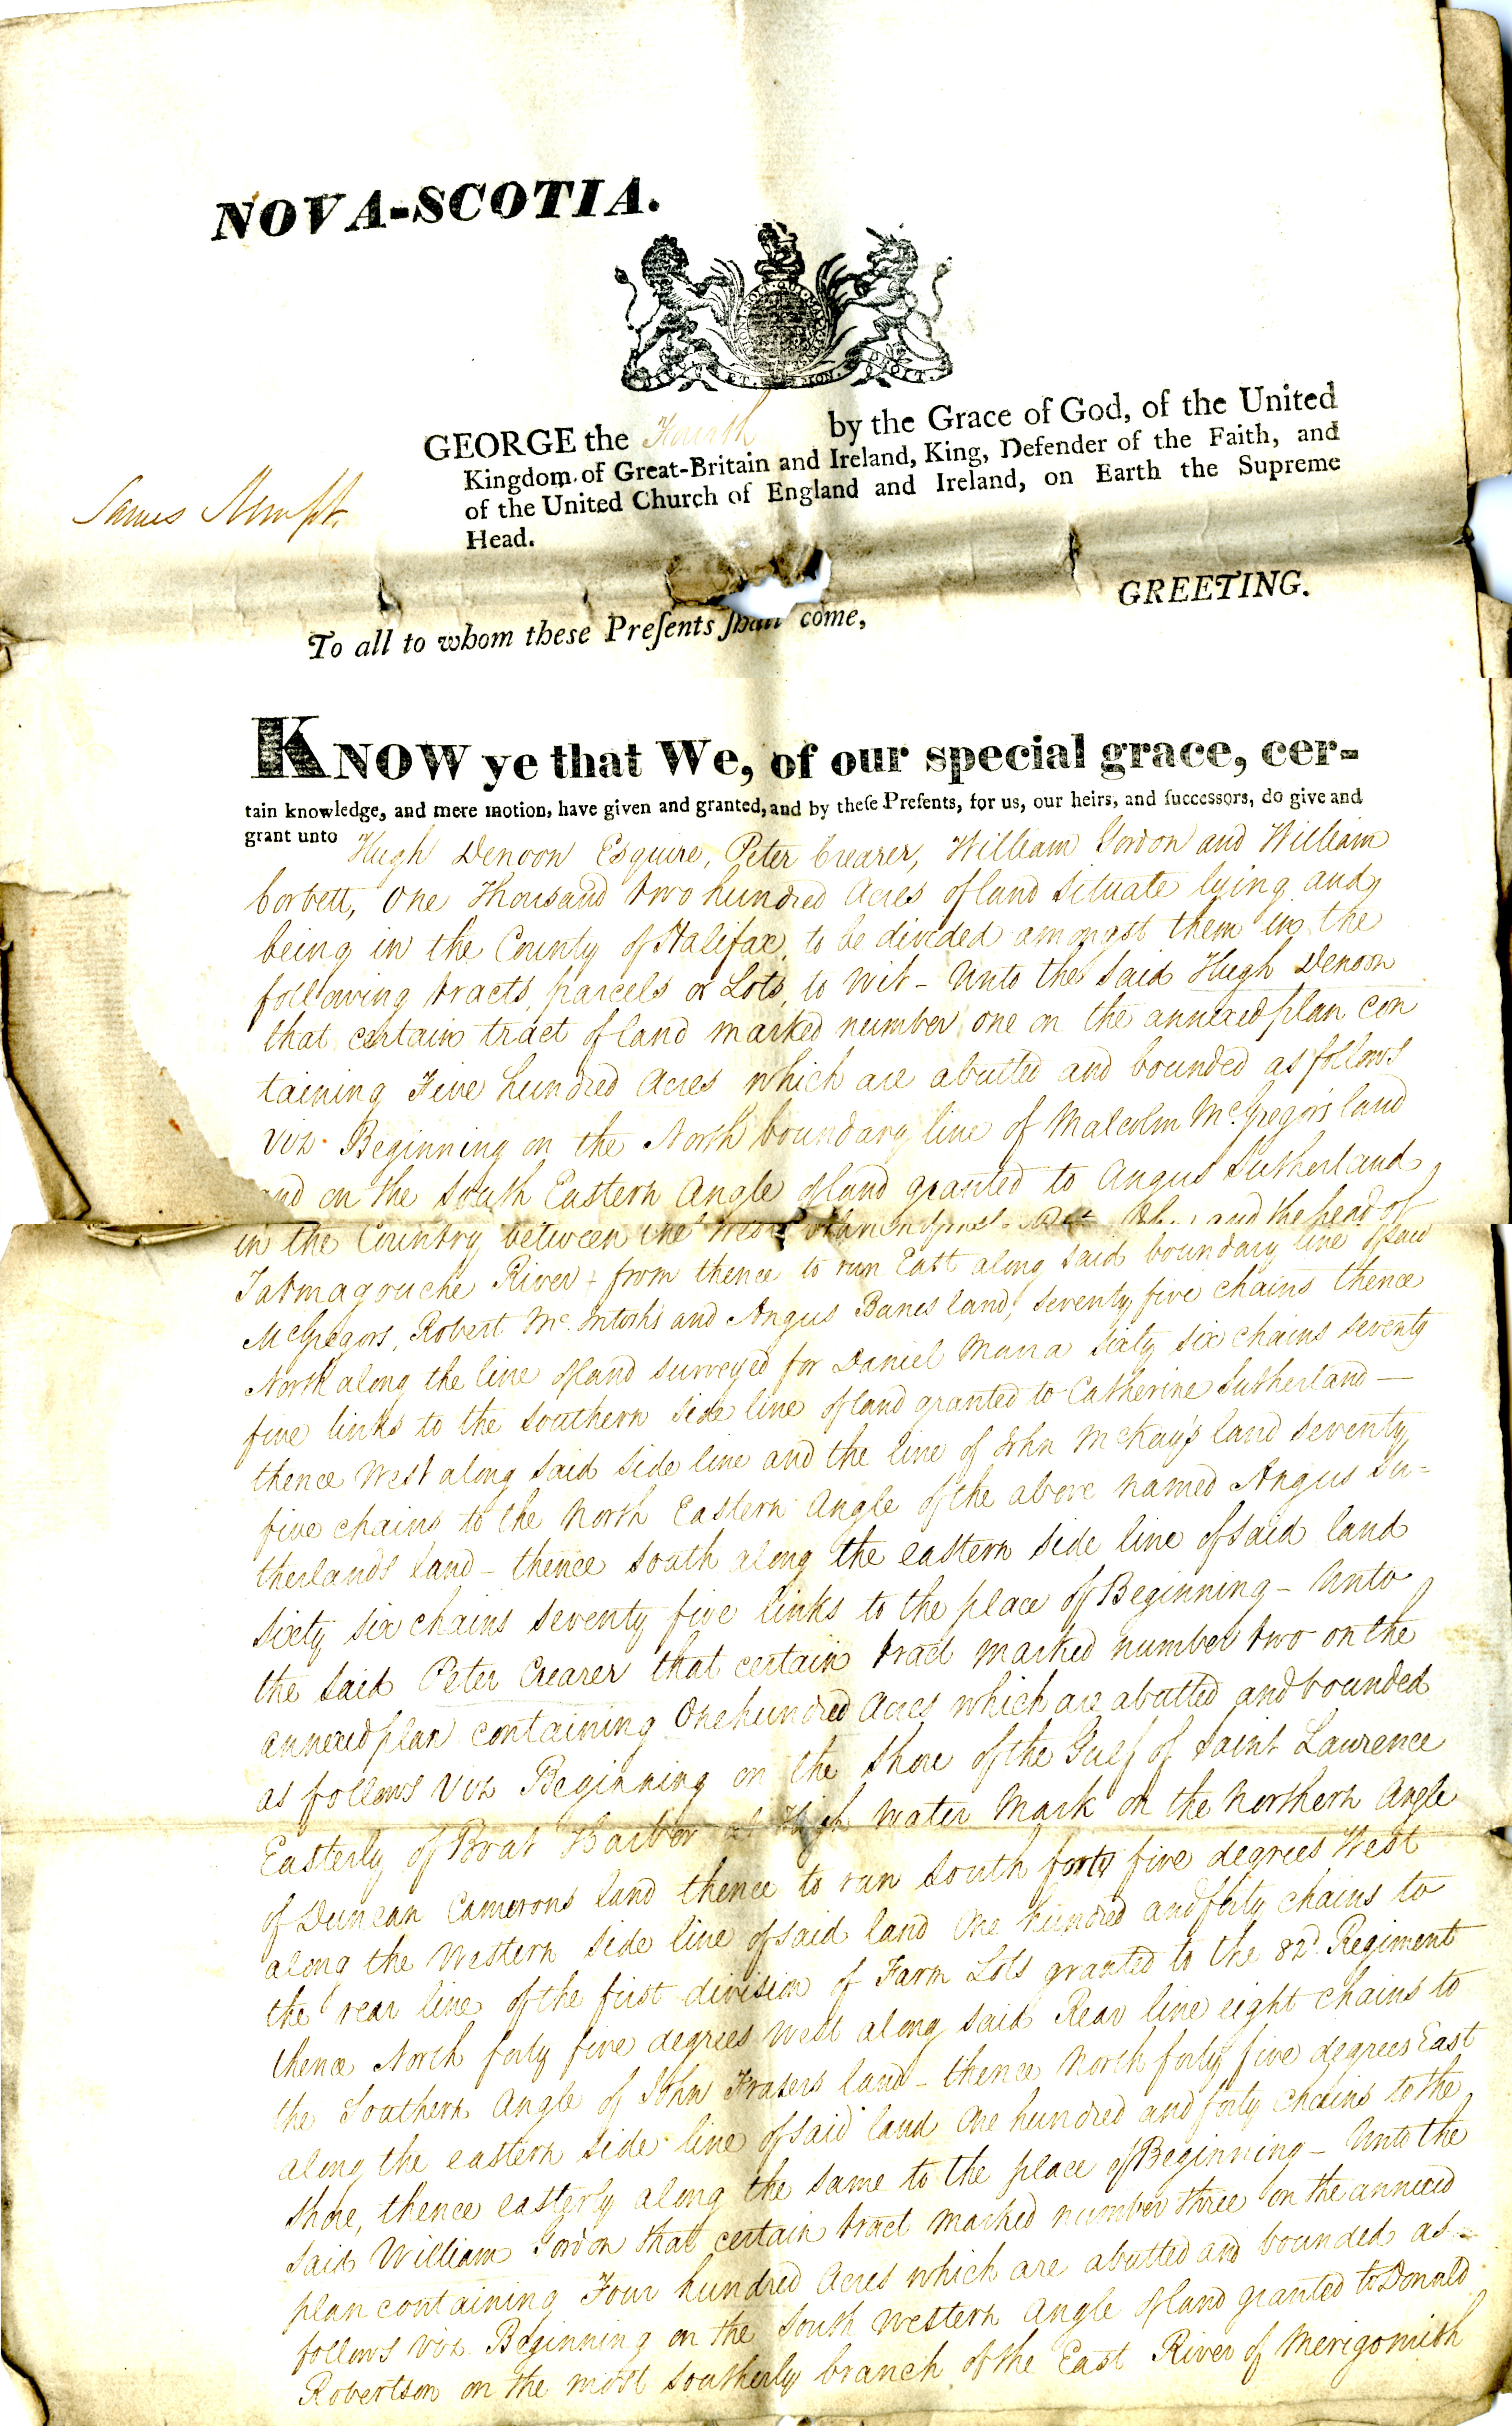 NOVA-SCOTIA.
GEORGE the Fourth by the Grace of God, of the United
Kingdom of Great-Britain and Ireland, King, Defender of the Faith, and
of the United Church of England and Ireland, on Earth the Supreme
Head.
James Kempt.
GREETING.
To all to whom these Preſents ſhall come,
KNOW ye that We, of our special grace, cer-
tain knowledge, and mere motion, have given and granted, and by theſe Preſents, for us, our heirs, and ſucceſſors, do give and
grant unto Hugh Denoon Esquire, Peter Crearer, William Gordon and William
Corbett, One Thousand two hundred Acres of land situate lying and
being in the County of Halifax, to be divided amongst them in the
following tracts, parcels or Lots, to wit - Unto the said Hugh Denoon
that certain tract of land marked number one on the annexed plan con
taining Five hundred Acres which are abutted and bounded as follows
Viz. Beginning on the North boundary line of Malcolm McGregors land
and on the South Eastern Angle of land granted to Angus Sutherland
in the Country between the West and the head of
Tatmagouche River - from thence to run East along said boundary line of said
McGregors, Robert McIntoshs and Angus Banes land, seventy five chains thence
North along the line of land surveyed for Daniel Munra sixty six chains seventy
five links to the southern side line of land granted to Catherine Sutherland —
thence West along said side line and the line of John McKay's land seventy
five chains to the North Eastern Angle of the above named Angus Su=
therlands land - thence South along the eastern side line of said land
sixty six chains seventy five links to the place of Beginning - Unto
the said Peter Crearer that certain tract marked number two on the
annexed plan containing One hundred Acres which are abutted and bounded
as follows Viz Beginning on the Shore of the Gulf of Saint Lawrence
Easterly of Boat Harbor at High Water Mark on the Northern Angle
of Duncan Camerons land thence to run South forty five degrees West
along the Western side line of said land One hundred and forty chains to
the rear line of the first division of Farm Lots granted to the 82d. Regiment
thence North forty five degrees West along said Rear line eight chains to
the Southern Angle of John Frasers land - thence North forty five degrees East
along the eastern side line of said land One hundred and forty chains to the
Shore, thence easterly along the same to the place of Beginning - Unto the
said William Gordon that certain tract marked number three on the annexed
plan containing Four hundred Acres which are abutted and bounded as =
follows viz Beginning on the South Western Angle of land granted to Donald
Robertson on the most Southerly branch of the East River of Merigomish